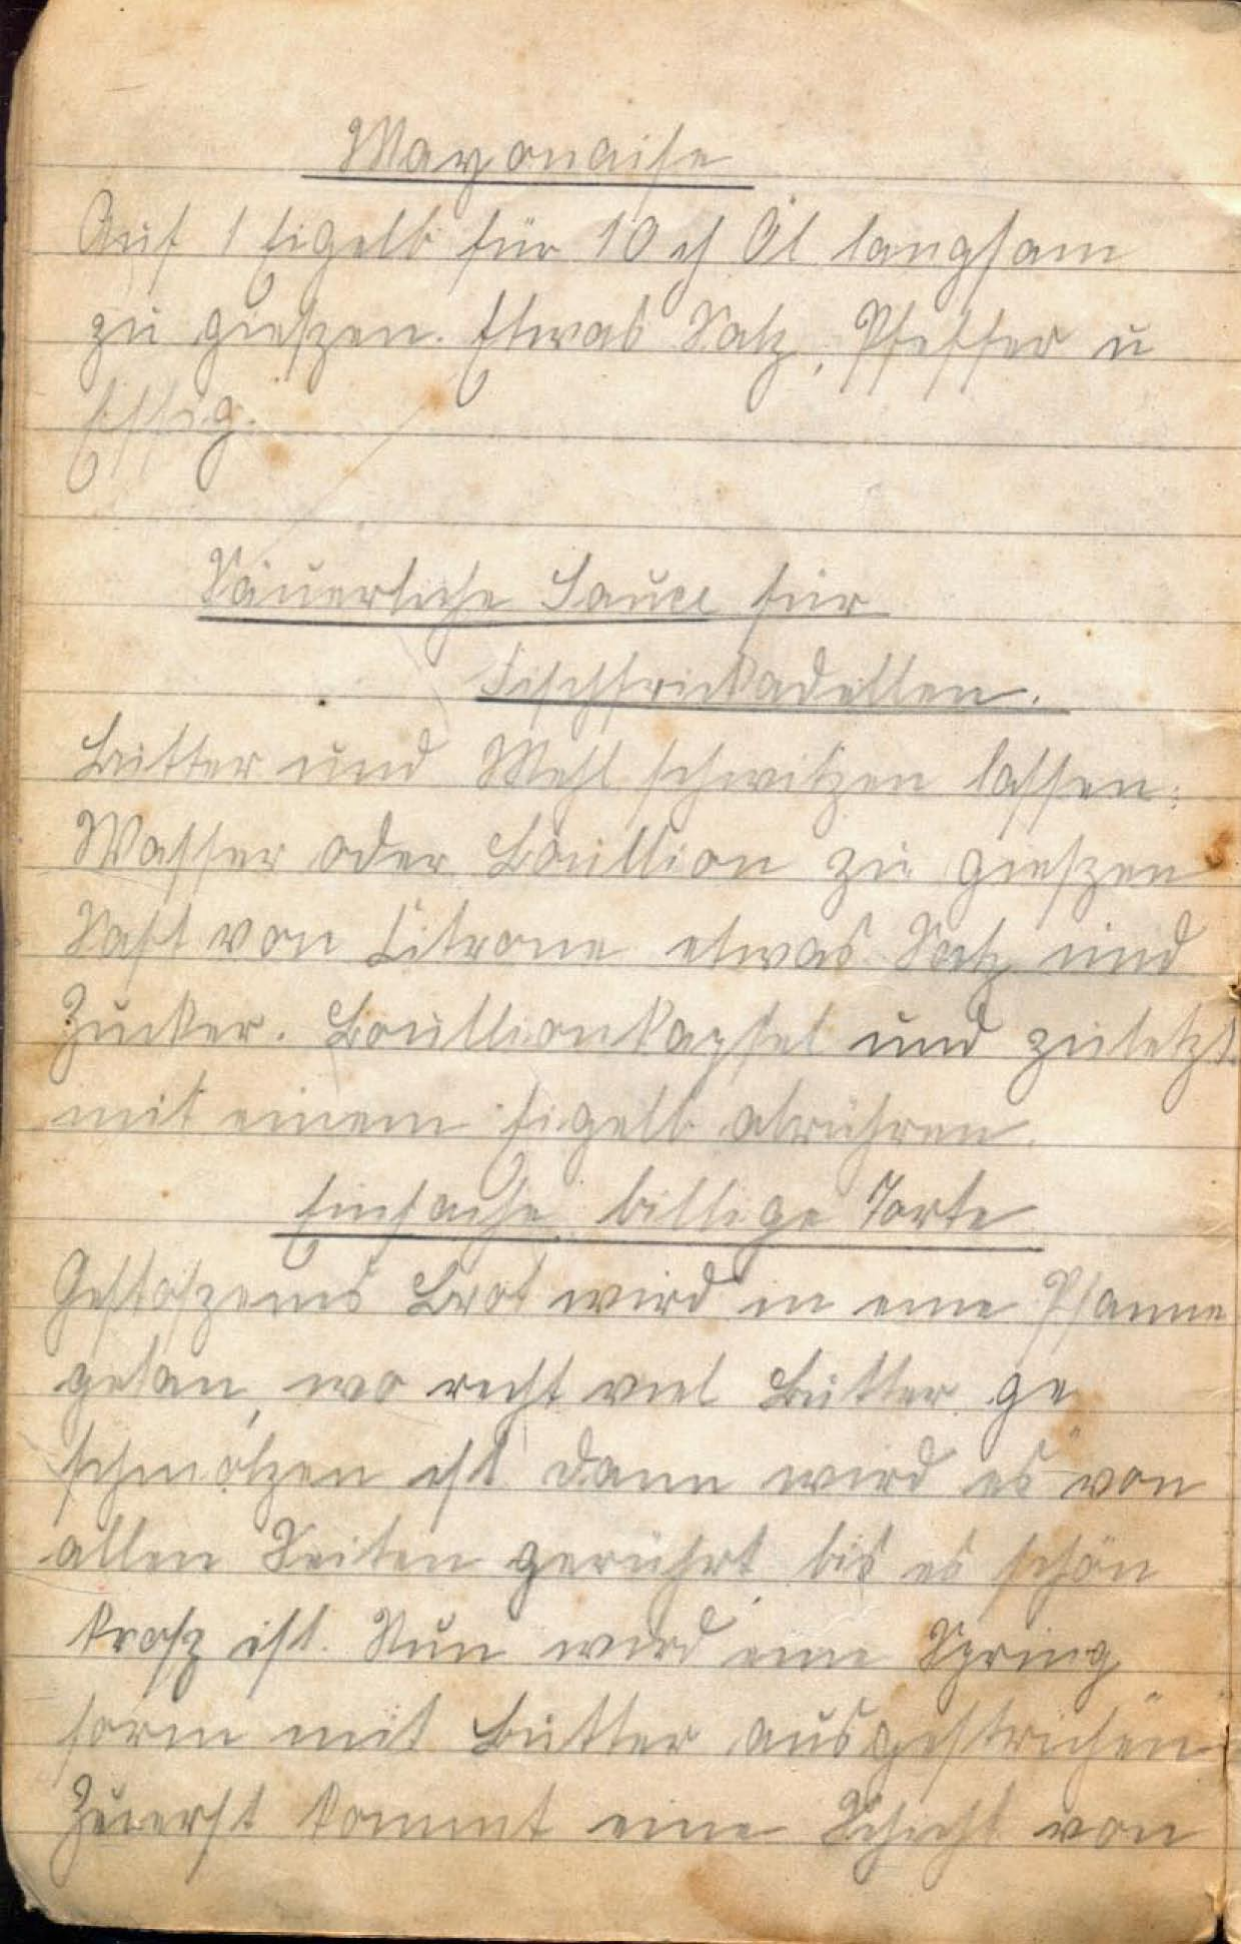 Mayonaise
Auf 1 Eigelb für 10 Öl langsam
zu gieszen. Etwas Salz, Pfeffer u
Essig.
Säuerliche Sauce für
Fischfrickadellen.
Butter und Mehl schwitzen lassen.
Wasser oder Bouillion zu gieszen
Saft von Citrone etwas Salz und
Zucker. Bouillionkapsel und zuletzt
mit einem Eigelb abrühren.
Einfache billige Torte
Gestoszenes Brot wird in eine Pfanne
getan, wo recht viel Butter ge
schmolzen ist dann wird es von
allen Seiten gerührt bis es schön
krosz ist. Nun wird eine Spring
form mit Butter ausgestrichen
Zuerst kommt eine Schicht von